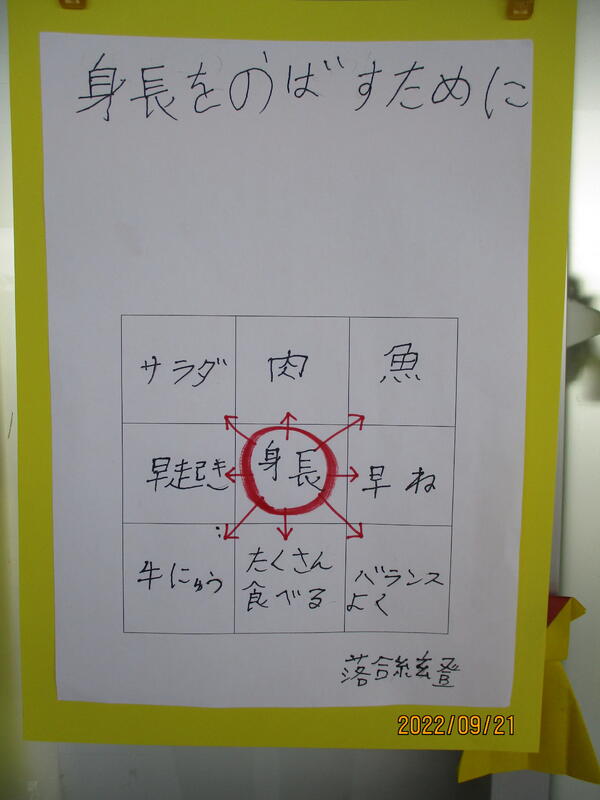 身長をのばすために
サラダ
肉
魚
早起き
身長
早ね
牛にゅう
たくさん
食べる
バランス
よく
落合絃登
2022/09/21